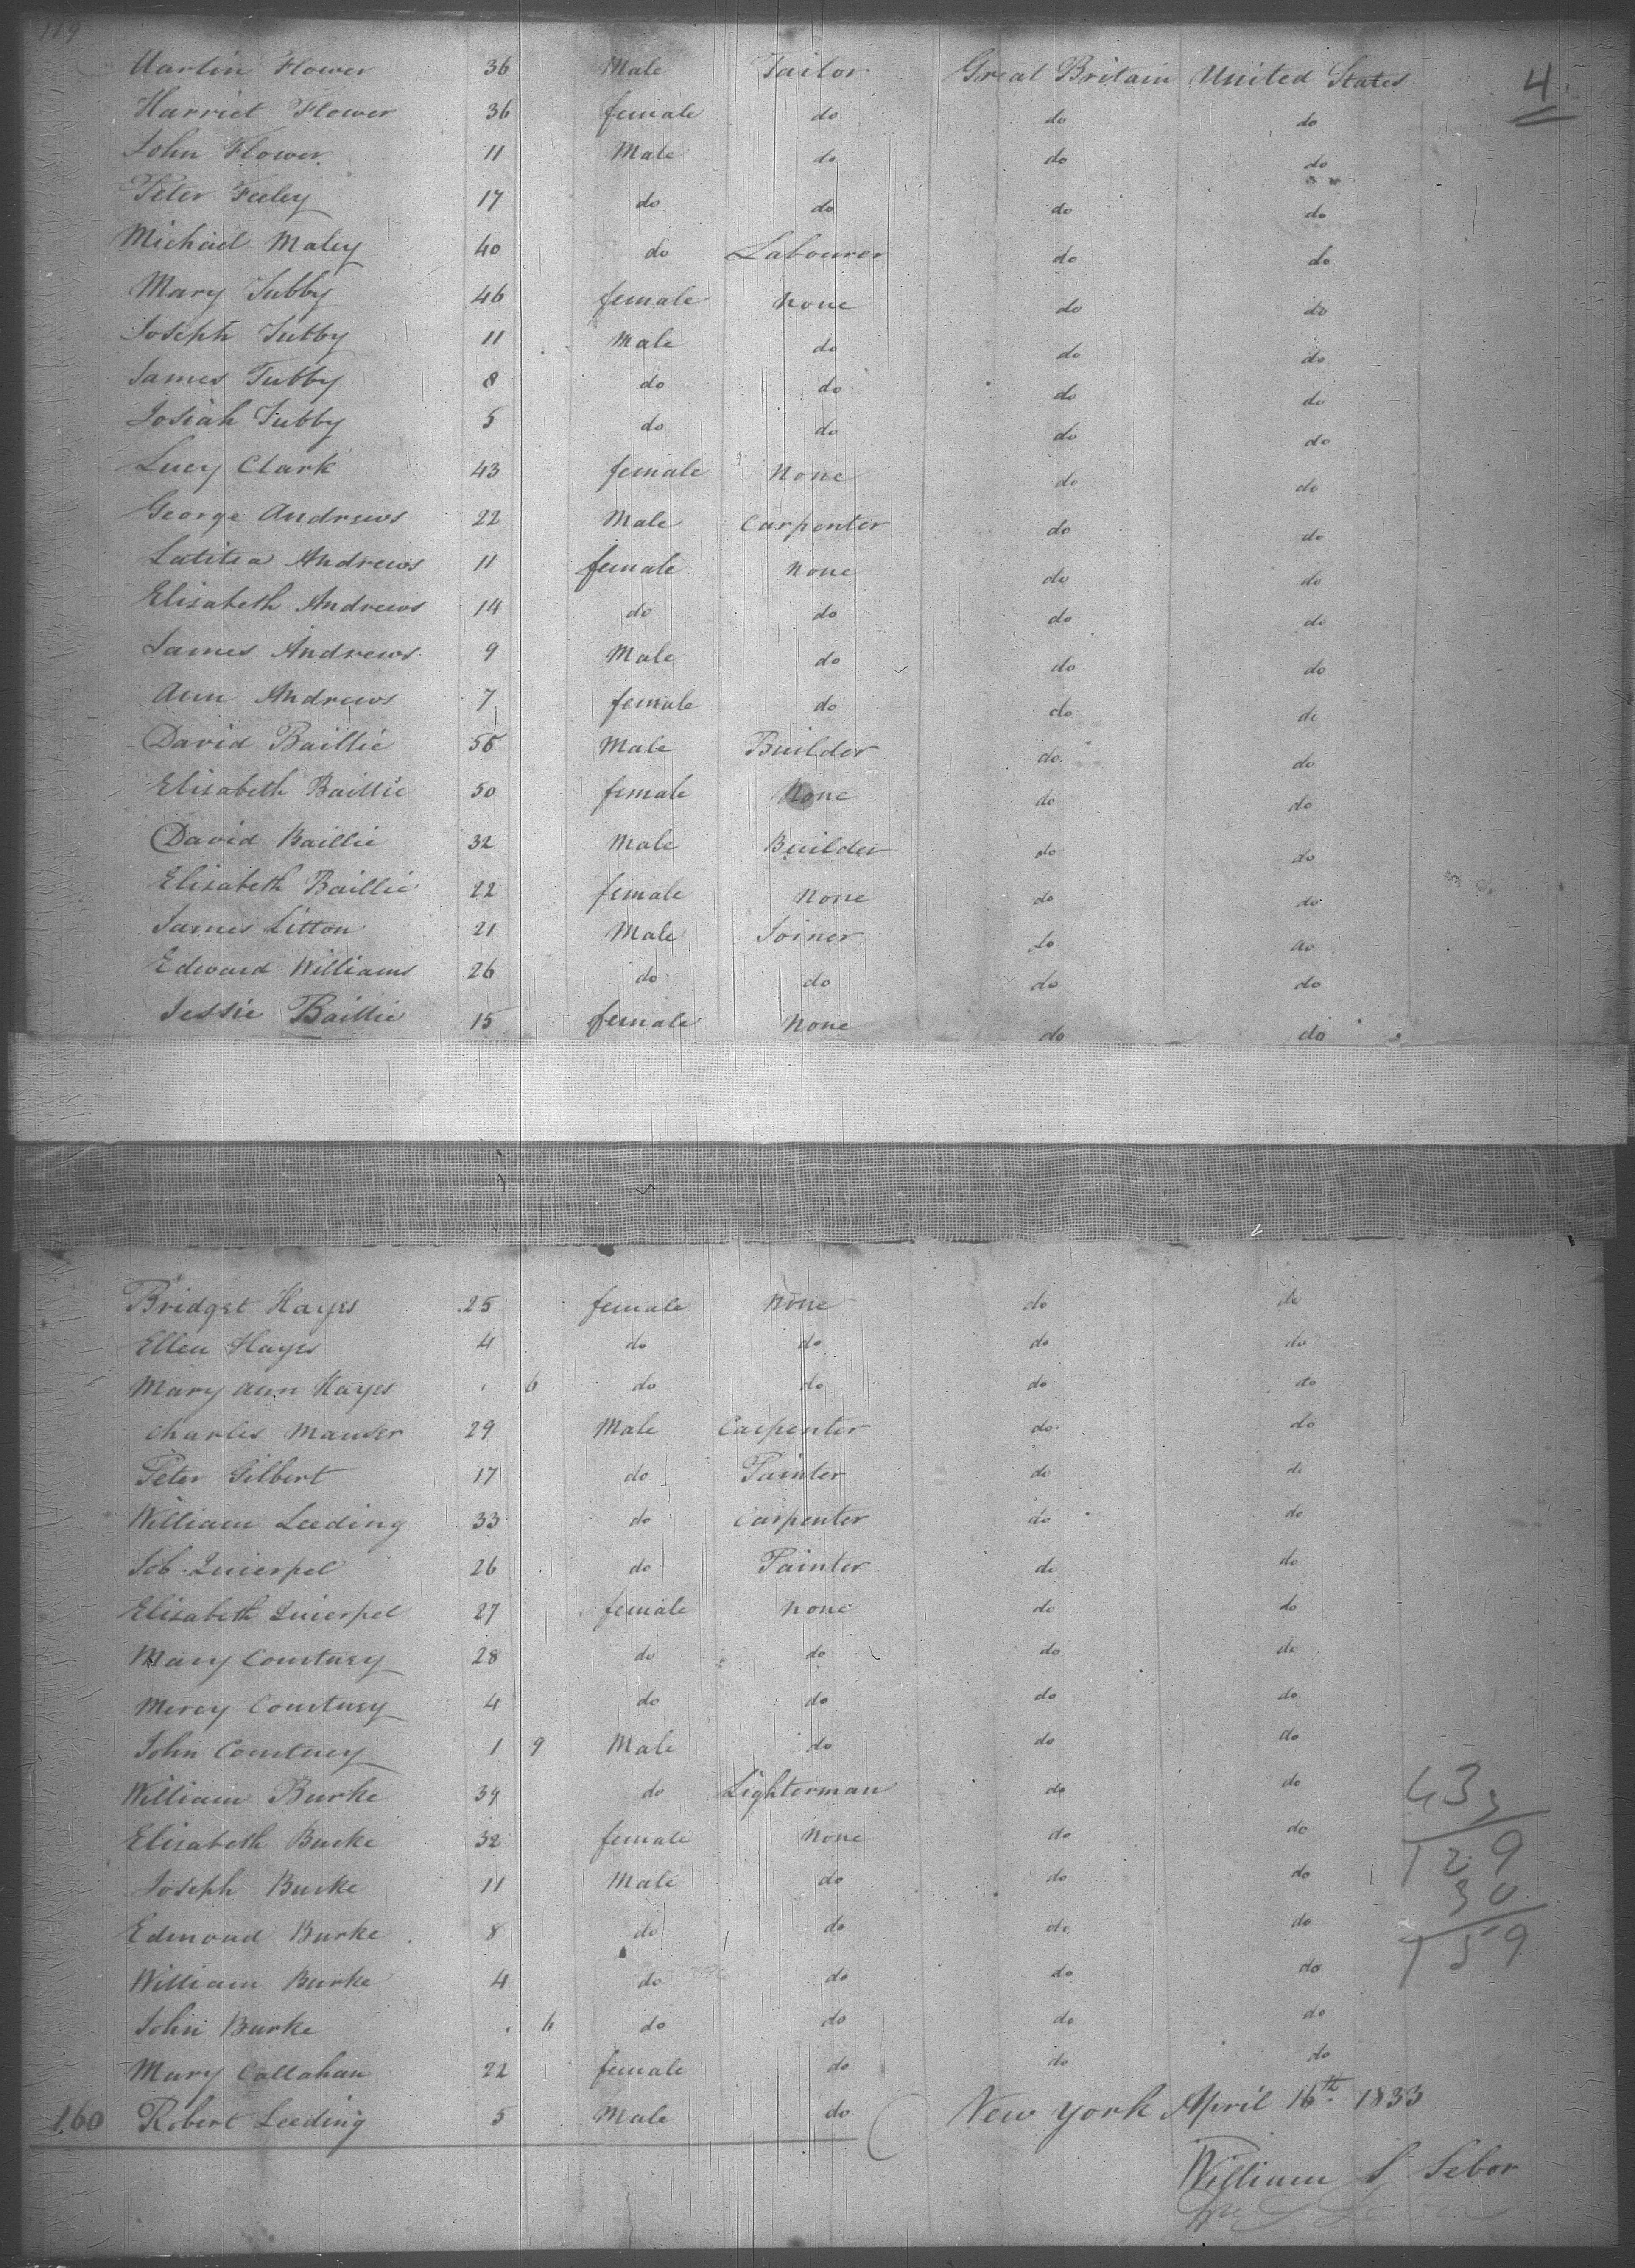 119
Martin Flower 36 Male Tailor Great Britain United States 4
Harriet Flower 36 female do do do
John Flower 11 Male do do do
Peter Feeley 17 do do do do
Michael Maley 40 do Labourer do do
Mary Tubby 46 female None do do
Joseph Tubby 11 Male do do do
James Tubby 8 do do do do
Josiah Tubby 5 do do do do
Lucy Clark 43 female None do do
George Andrews 22 Male Carpenter do do
Latitia Andrews 11 female None do do
Elizabeth Andrews 14 do do do do
James Andrews 9 Male do do do
Ann Andrews 7 female do do do
David Baillie 55 Male Builder do do
Elizabeth Baillie 50 female None do do
David Baillie 32 Male Builder do do
Elizabeth Baillie 22 female None do do
James Litton 21 Male Joiner do do
Edward Williams 26 do do do do
Jessie Baillie 15 female None do do
Bridget Hayes 25 female None do do
Ellen Hayes 4 do do do do
Mary Ann Hayes 6 do do do do
Charles Manser 29 Male Carpenter do do
Peter Gilbert 17 do Painter do do
William Leeding 33 do Carpenter do do
Job Quierpel 26 do Painter do do
Elizabeth Quierpel 27 female None do do
Mary Courtney 28 do do do do
Mercy Courtney 4 do do do do
John Courtney 1 9 Male do do do
William Burke 34 do Lighterman do do
Elizabeth Burke 32 female None do do
Joseph Burke 11 Male do do do
Edmond Burke 8 do do do do
William Burke 4 do do do do
John Burke 6 do do do do
Mary Callahan 22 female do do do
160 Robert Leeding 5 Male do
43
3
129
30
159
New York April 16th 1833
William S Sebor
Wm S Sebor